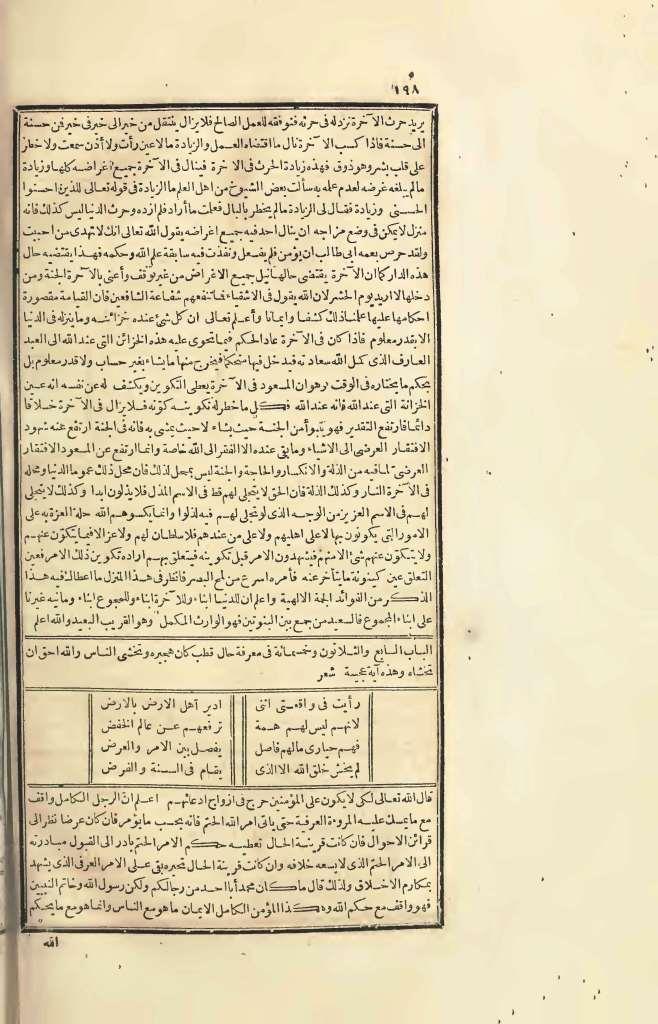 ١٩٨
يريد حرث الآخرة نزد له فى حرثه فنوفقه للعمل الصالح فلا يزال ينتقل من خير الى خير فى خير فمن حسنة
الى حسنة فاذا كسب الآخرة نال ما اقتضاه العمل والزيادة مالا عين رأت ولا أذن سمعت ولا خطر
على قلب بشر وهو ذوق فهذه زيادة الحرث فى الآخرة فينال فى الآخرة جميع اغراضه كلها وزيادة
مالم يبلغه غرضه لعدم علمه به سألت بعض الشيوخ من اهل العلم ما الزيادة فى قوله تعالى للذين احسنوا
الحسنى وزيادة فقال لى الزيادة مالم يخطر بالبال فعلمت ما أراد فلم ازده وحرث الدنيا ليس كذلك فانه
منزل لا يمكن فى وضع مزاجه ان ينال احد فيه جميع اغراضه يقول الله تعالى انك لا تهدى من احببت
ولقد حرص بعمه ابى طالب ان يؤمن فلم يفعل ونفذت فيه سابقة علم الله وحكمه فهذا يقتضيه حال
هذه الدار كما ان الآخرة يقتضى حالها نيل جميع الاغراض من غير توقف وأعنى بالآخرة الجنة ومن
دخلها لا اريد يوم الحشر لان الله يقول فى الاشقياء فما تنفعهم شفاعة الشافعين فان القيامة مقصورة
احكامها عليها علمنا ذلك كشفا وايمانا وأعلم تعالى ان كل شئ عنده خزائنه وما ينزله فى الدنيا
الا بقدر معلوم فاذا كان فى الآخرة عاد الحكم فيما تحوى عليه هذه الخزائن التى عند الله الى العبد
العارف الذى كمل الله سعادته فيدخل فيها متحكما فيخرج منها ما يشاء بغير حساب ولا قدر معلوم بل
بحكم ما يختاره فى الوقت وهو ان المسعود فى الآخرة يعطى التكوين ويكشف له عن نفسه انه عين
الخزانة التى عند الله فانه عند الله فكل ما خطر له تكوينه كونه فلا يزال فى الآخرة خلاقا
دائما فارتفع التقدير فهو يتبوأ من الجنة حيث يشاء لا حيث يمشى به فانه فى الجنة ارتفع عنه شهود
الافتقار العرضى الى الاشياء وما بقى عنده الا الفقر الى الله خاصة وانما ارتفع عن المسعود الافتقار
العرضى لما فيه من الذلة والانكسار والحاجة والجنة ليس بمحل لذلك فان محل ذلك عموما الدنيا ومحله
فى الآخرة النار وكذلك الذلة فان الحق لا يتجلى لهم قط فى الاسم المذل فلا يذلون ابدا وكذلك لا يتجلى
لهم فى الاسم العزيز من الوجه الذى لو تجلى لهم فيه لذلوا وانما يكسوهم الله حلة العزة به على
الامور التى يكونون بها لا على اهليهم ولا على من عندهم فلا سلطان لهم ولا عز الا فيما يتكون عنهم
ولا يتكون عنهم شئ الا منهم فيشهدون الامر قبل تكوينه فيتعلق بهم ارادة تكوين ذلك الامر فعين
التعلق عين كينونة ما يتأخر عنه فأمره اسرع من لمح البصر فانظر فى هذا المنزل ما اعطاك فيه هذا
الذكر من الفوائد الجمة الالهية واعلم ان للدنيا ابناء وللآخرة ابناء وللمجموع ابناء وما نبه غيرنا
على ابناء المجموع فالسعيد من جمع بين البنوتين فهو الوارث المكمل وهو القريب البعيد والله اعلم
الباب السابع والثلاثون وخمسمائة فى معرفة حال قطب كان هجيره وتخشى الناس والله احق ان
تخشاه وهذه آية عجيبة شعر
رأيت فى واقعتى اننى ادير أهل الارض بالارض
لانهم ليس لهم همة ترفعهم عن عالم الخفض
فهم حيارى مالهم فاصل يفصل بين الامر والعرض
لم يخش خلق الله الا الذى يقام فى السنة والفرض
قال الله تعالى لكى لا يكون على المؤمنين حرج فى ازواج ادعيائهم اعلم ان الرجل الكامل واقف
مع ما يمسك عليه المروءة العرفية حتى يأتى امر الله الحتم فانه بحسب ما يؤمر فان كان عرضا نظر الى
قرائن الاحوال فان كانت قرينة الحال تعطيه حكم الامر الحتم بادر الى القبول مبادرته
الى الامر الحتم الذى لا يسعه خلافه وان كانت قرينة الحال تخيره بقى على الامر العرفى الذى يشهد
بمكارم الاخلاق ولذلك قال ما كان محمد أبا احد من رجالكم ولكن رسول الله وخاتم النبيين
فهو واقف مع حكم الله وهكذا المؤمن الكامل الايمان ما هو مع الناس وانما هو مع ما يحكم
الله